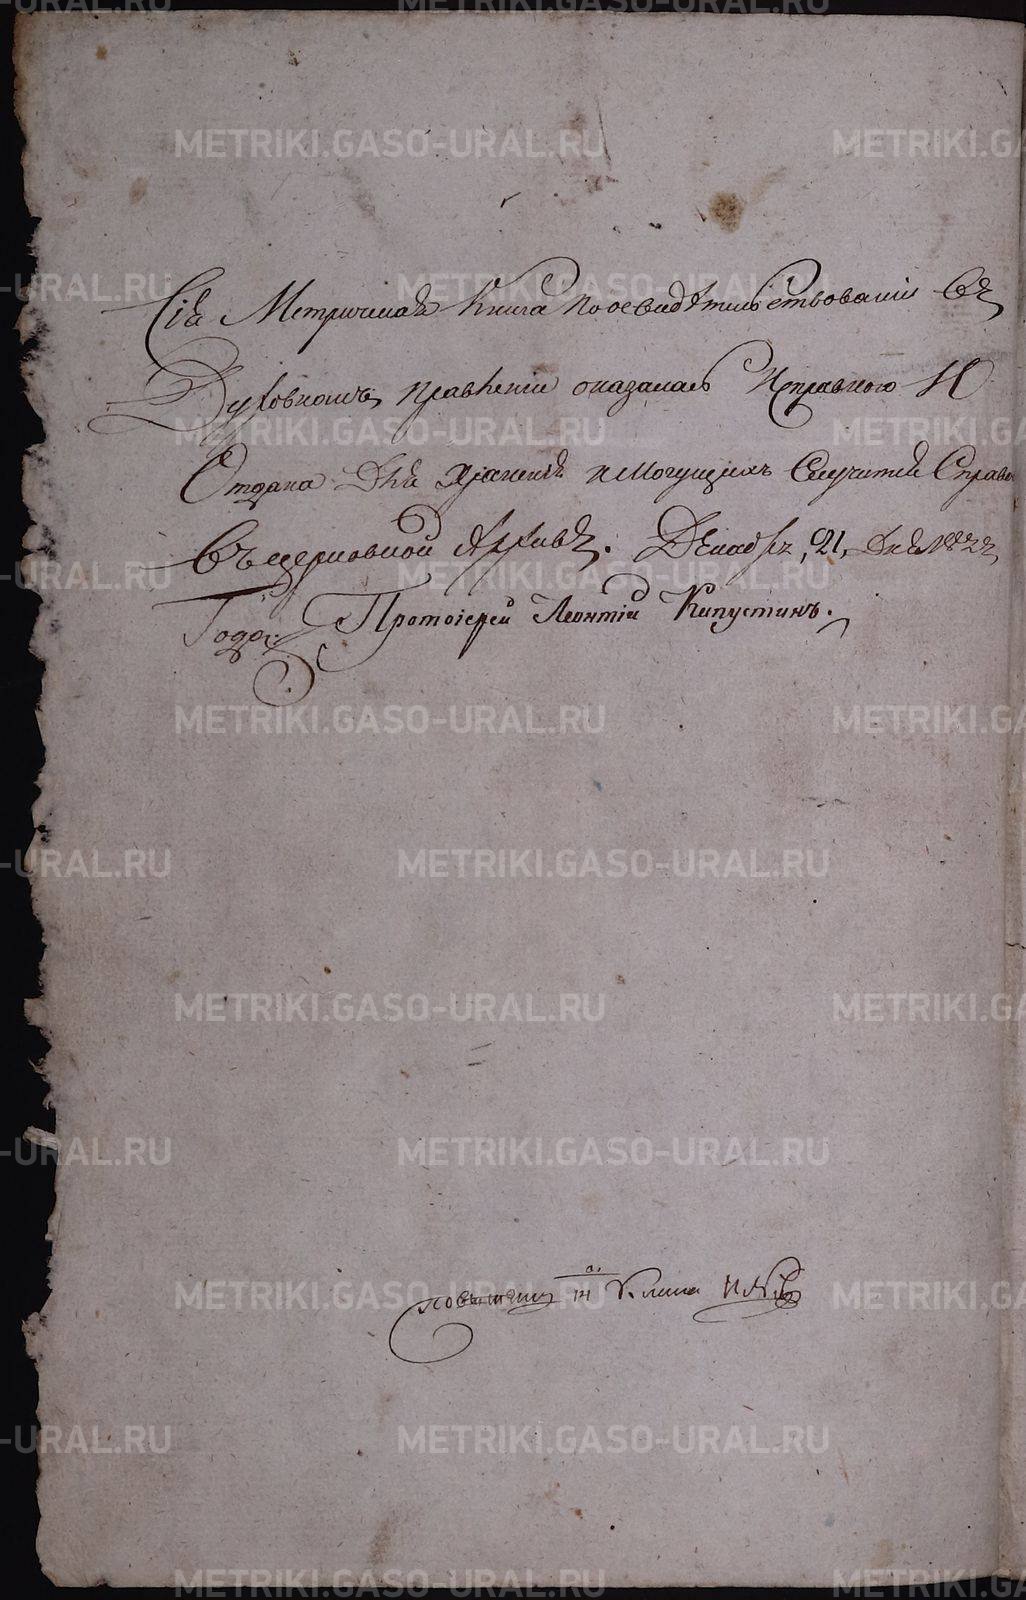 Сія Метрическая Книга по освидѣтельствованіи въ
Духовномъ правленіи оказалась Исправною И
Отдана для храненія и могущихъ Случится Справокъ
Въ церковной Архивъ. Декабря 21, дня 1822
Года. Протоіерей Леонтій Капустинъ.